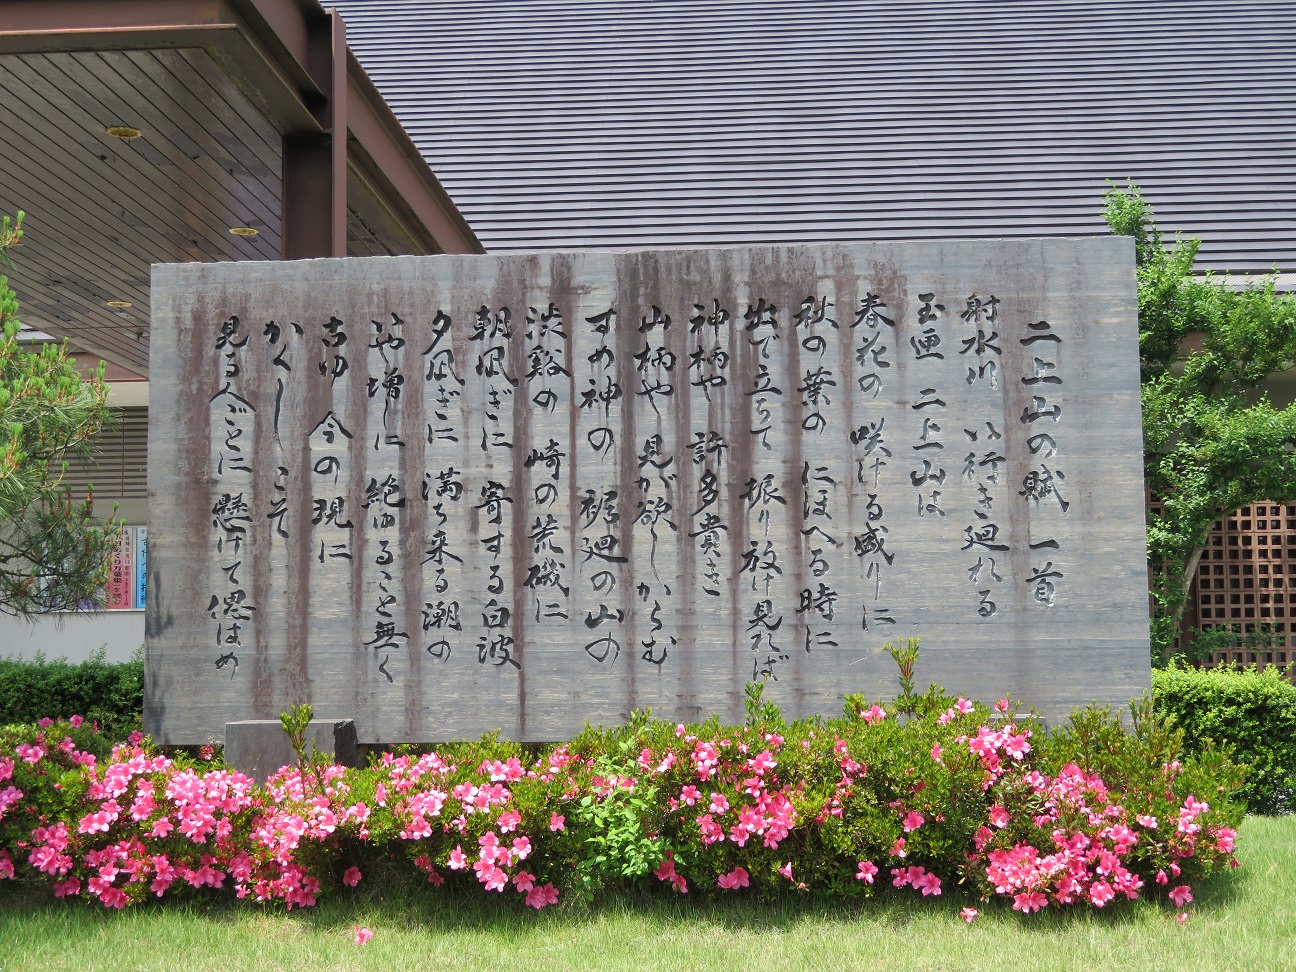 二上山の賦 一首
射水川 い行き廻れる
玉匣 二上山は
春花の 咲ける盛りに
秋の葉の にほへる時に
出で立ちて 振り放け見れば
神柄や 許多貴き
山柄や 見が欲しからむ
すめ神の 裾廻の山の
渋谿の 崎の荒磯に
朝凪ぎに 寄する白波
夕凪ぎに 満ち来る潮の
いや増しに 絶ゆること無く
古ゆ 今の現に
かくしこそ
見る人ごとに 懸けて偲はめ